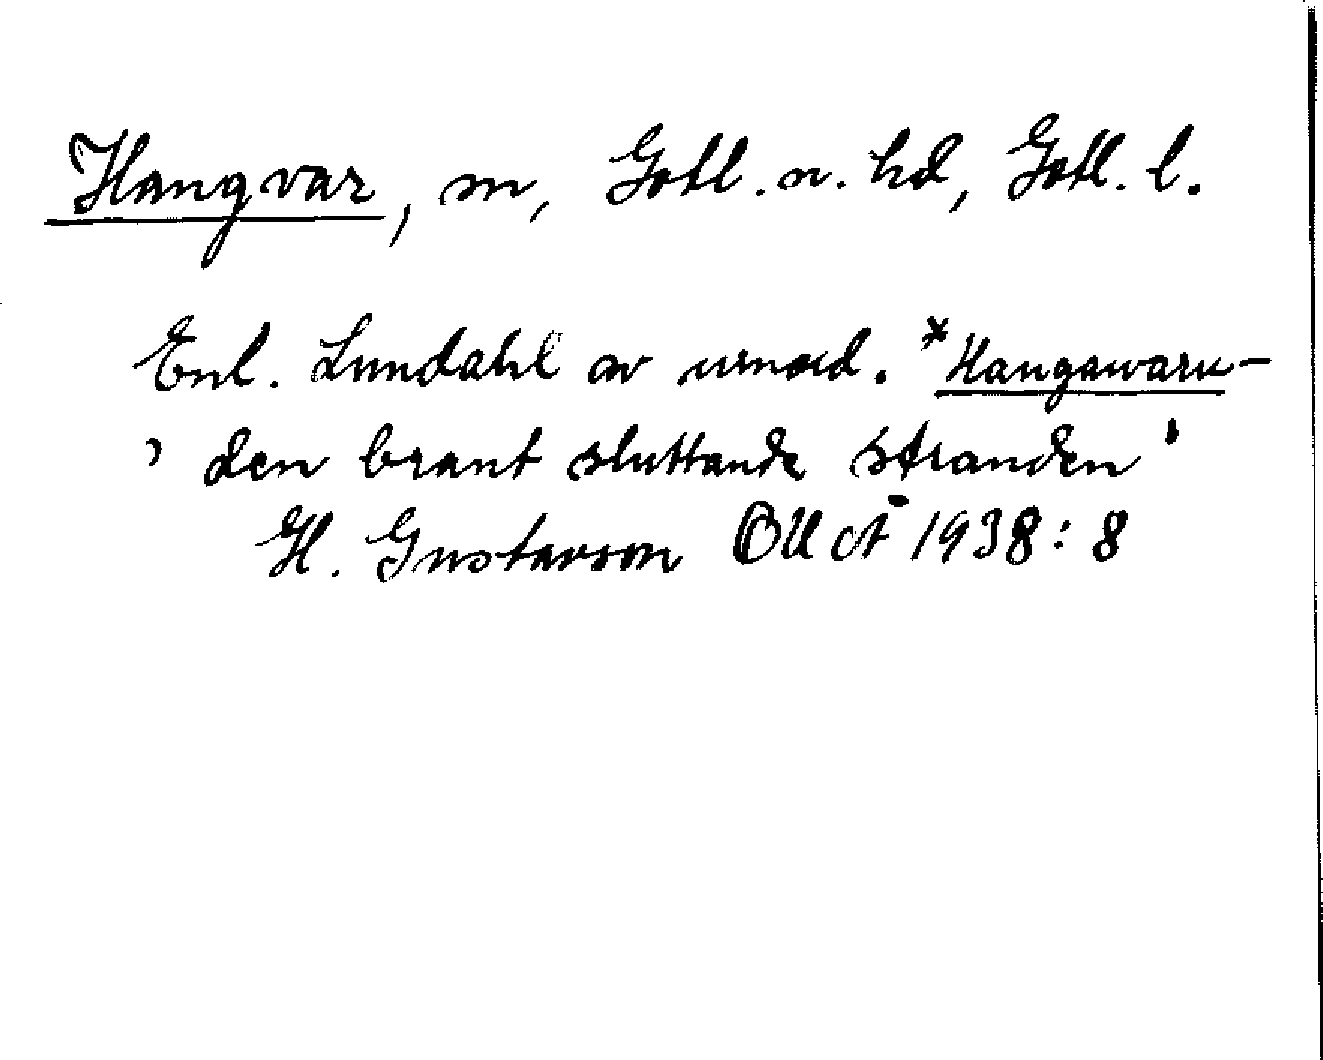 Hangvar, sn, Gotl. n. hd, Gotl. l.
Enl. Lundahl av urnord. *Hangawaru-
'den brant sluttande stranden'
H. Gustavson OUÅ 1938:8